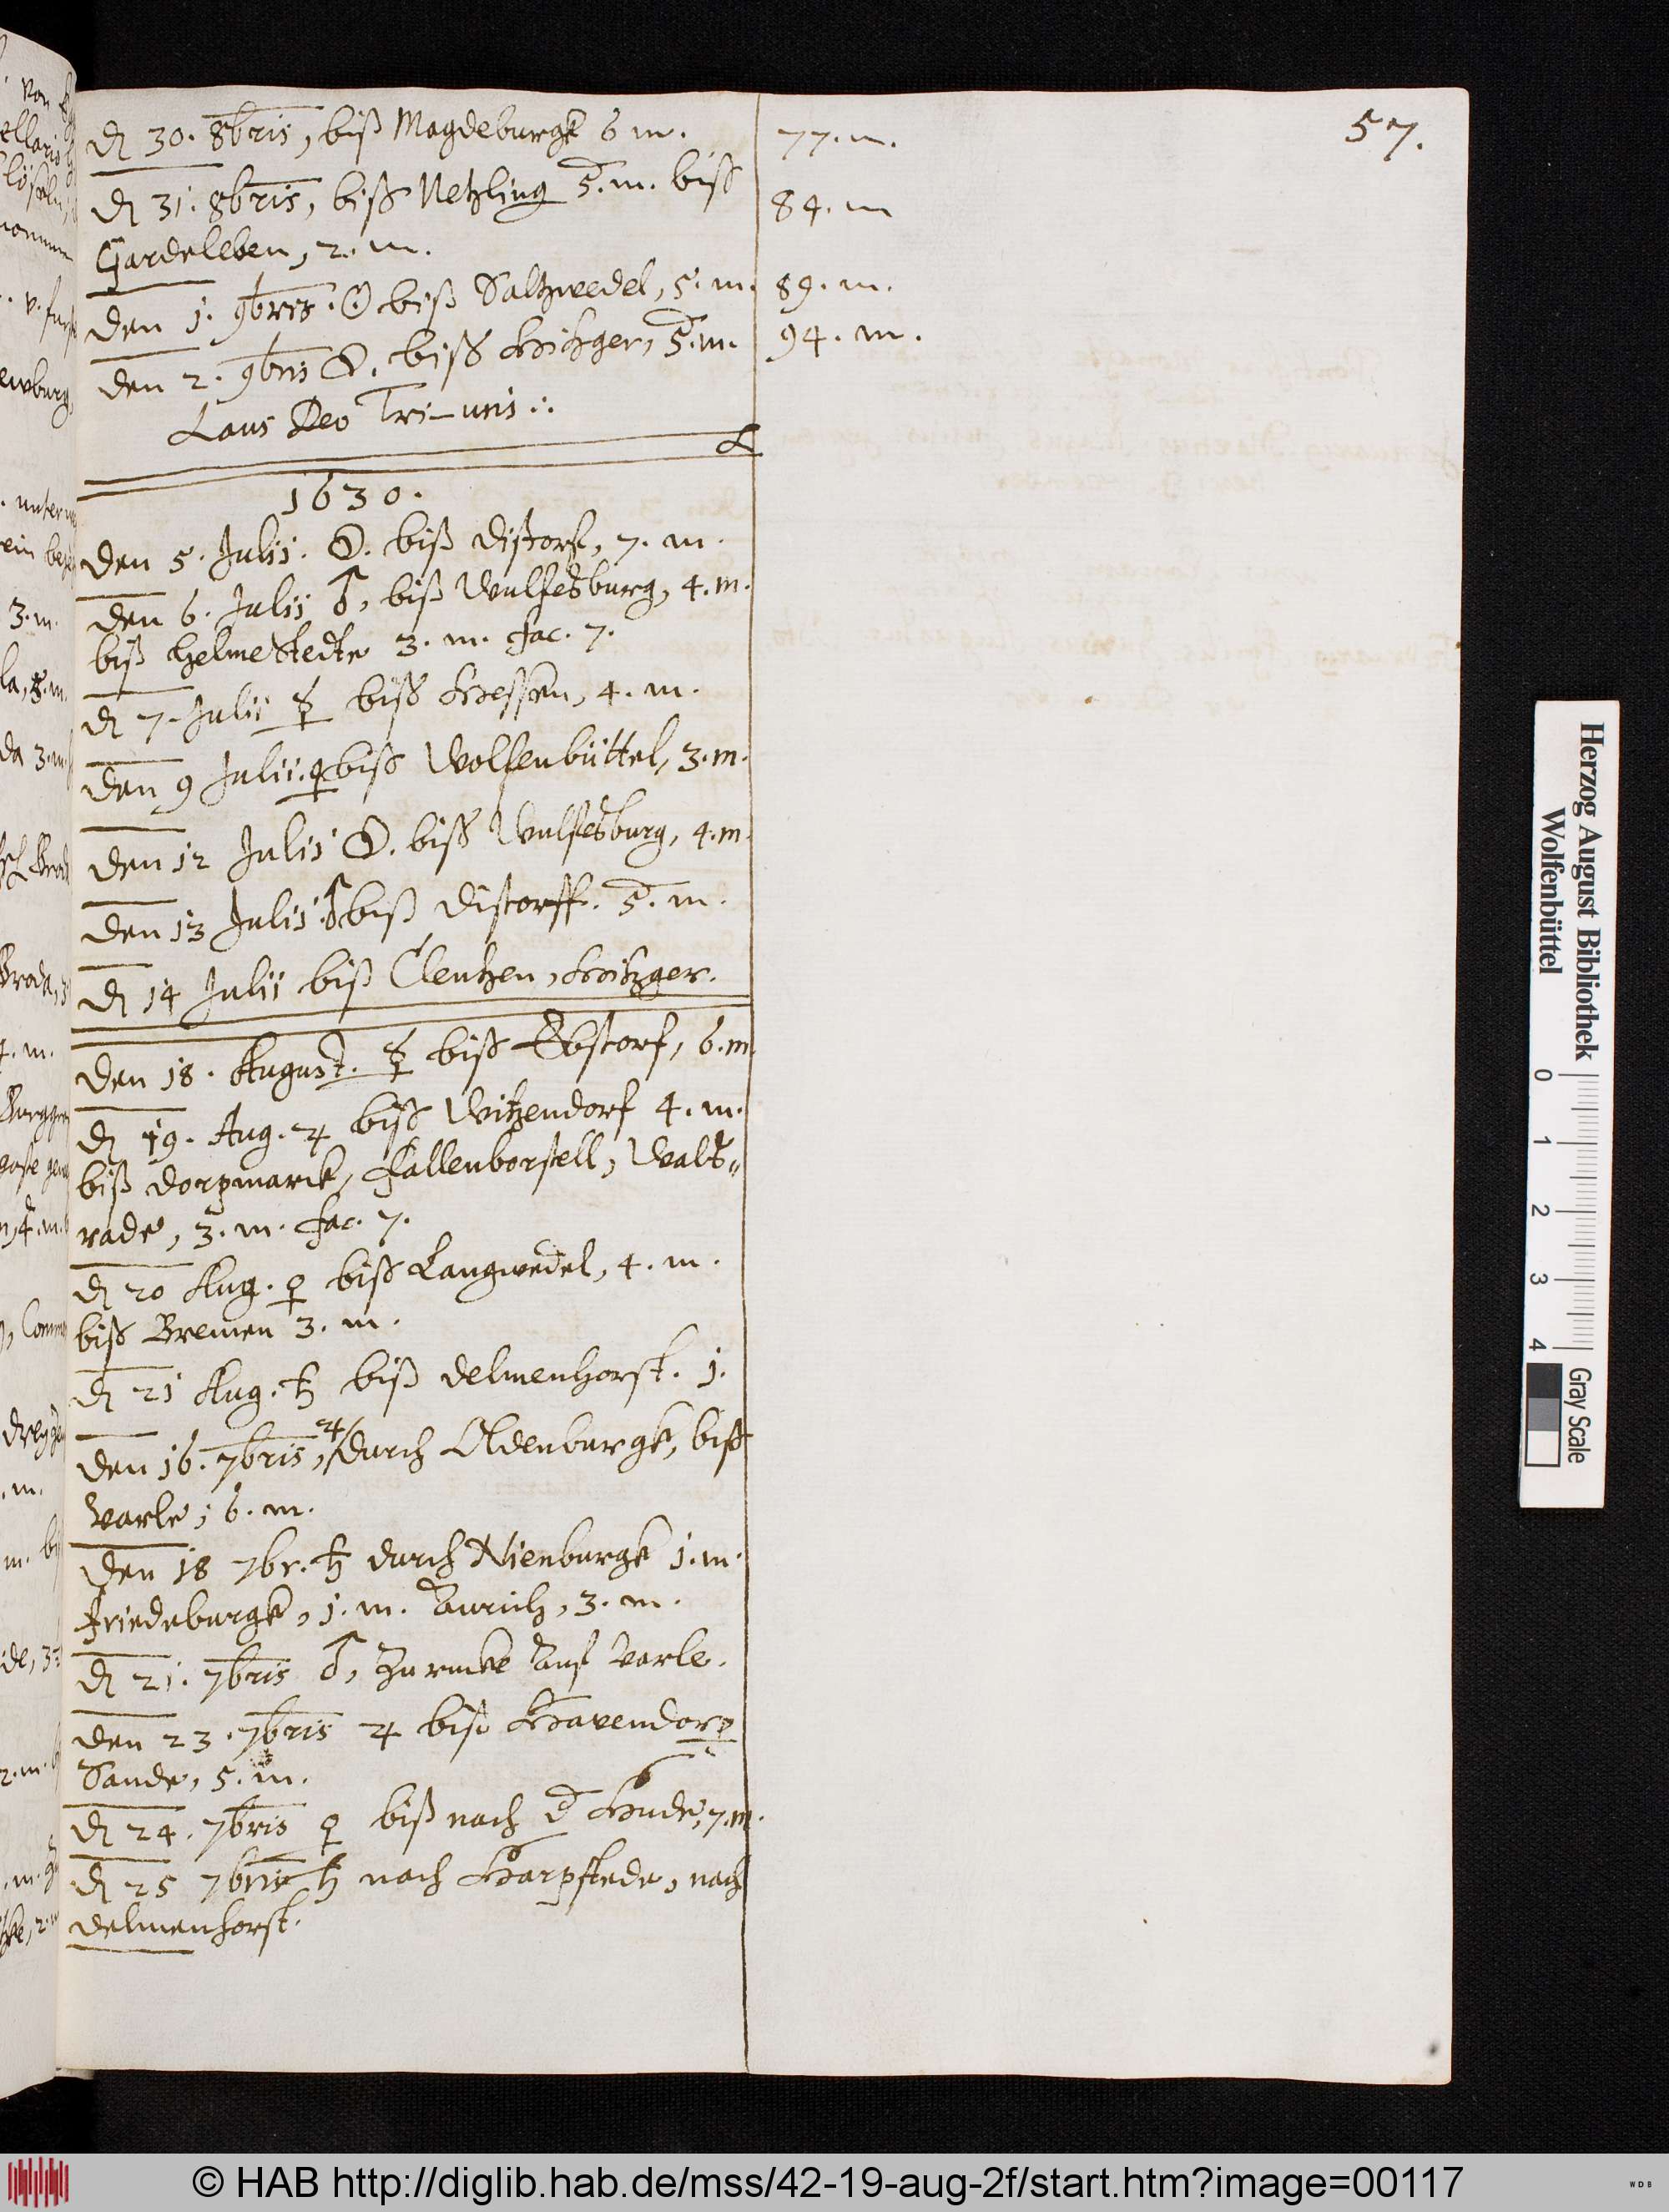 57.
d 30. 8bris, biß Magdeburgk 6 m. 77. m.
d 31. 8bris, biß Netzling 5. m. biß 84. m
Gardeleben, 2. m.
den 1. 9bris. ☉ biß Saltzwedel, 5. m. 89. m.
den 2. 9bris ☽. biß Hitzger, 5. m. 94. m.
Laus Deo Tri-uni
1630.
den 5. Julii. ☽. biß Distorf, 7. m.
den 6. Julii ♂, biß Wulfesburg, 4. m.
biß Helmestedte 3. m. fac. 7.
d 7. Julii ☿ biß Hessen, 4. m.
den 9 Julii. ♀ biß Wolfenbüttel, 3. m.
den 12 Julii ☽. biß Wulfesburg, 4. m.
den 13 Julii ♂ biß Distorff. 5. m.
d 14 Julii biß Clentzen, Hitzger.
den 18. August. ☿ biß Ebstorf, 6. m.
d 19. Aug. ♃ biß Witzendorf 4. m.
biß Dorpmarck, Fallenborstell, Wals„
rade, 3. m. fac. 7.
d 20 Aug. ♀ biß Langwedel, 4. m.
biß Bremen 3. m.
d 21 Aug. ♄ biß Delmenhorst. 1.
den 16. 7bris, ♃ durch Oldenburgk, biß
Varle, 6. m.
den 18 7br. ♄ durch Nienburgk 1. m.
Friedeburgk, 1. m. Aurich, 3. m.
d 21. 7bris ♂, Zurucke auf Varle.
den 23. 7bris ♃ biß Havendorp
Sande, 5. m.
d 24. 7bris ♀ biß nach d Hude, 7. m.
d 25 7bris ♄ nach Harpstede, nach
Delmenhorst.
Herzog August Bibliothek
Wolfenbüttel
0 1 2 3 4
Gray Scale
© HAB http://diglib.hab.de/mss/42-19-aug-2f/start.htm?image=00117
WDB